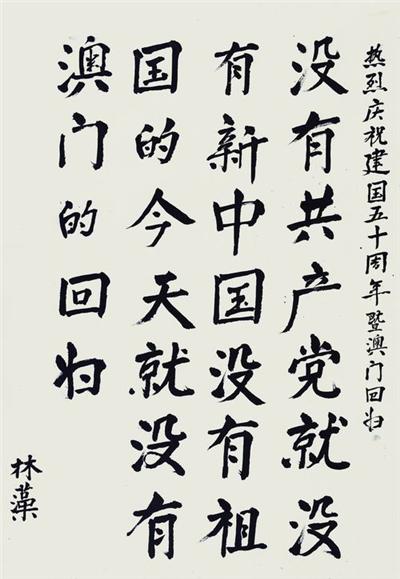 热烈庆祝建国五十周年暨澳门回归
没有共产党就没
有新中国没有祖
国的今天就没有
澳门的回归
林藻